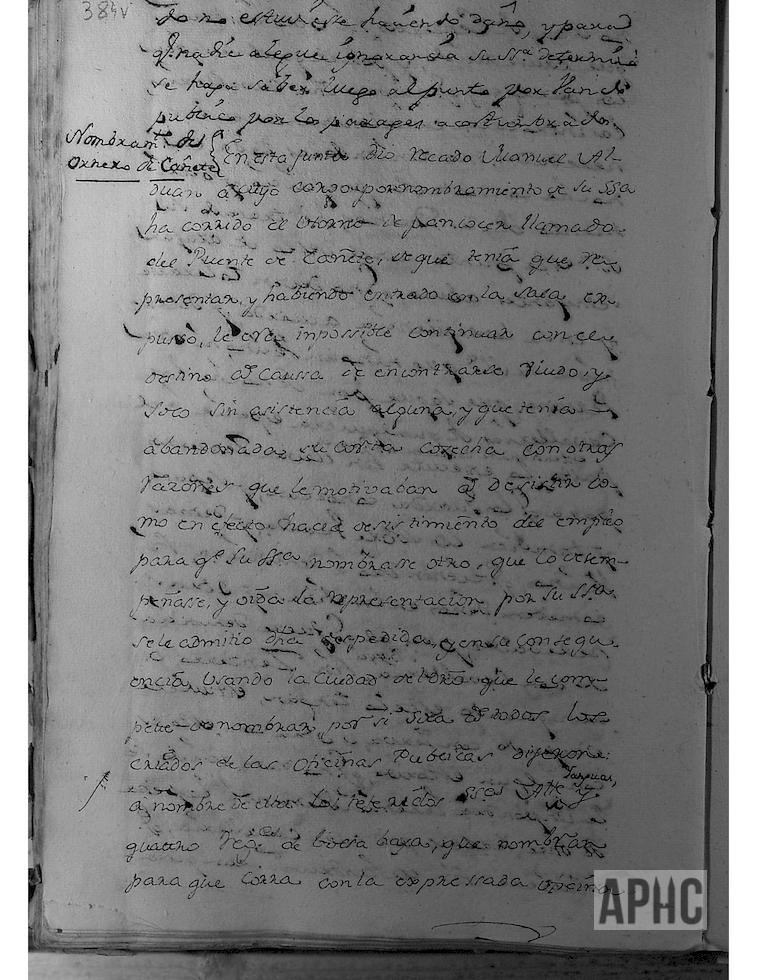 384v
do no estubieste haciendo daño, y para
q.e nadie alegue ignorancia su ss.a determinó
se haga saber luego al punto por Vando
publico por los parages acostumbrados
Nombram.to del
Ornero de Cañete
En esta Junta dio recado Manuel Al-
duan a cuyo cargo por nombramiento de su ssa
ha corrido el Horno de pancocer llamado
del Puente de Cañete, de que tenia que re-
presentar, y habiendo entrado en la Sala ex-
puso, le era inpossible continuar con el
destino aΙ caussa de encontrarse Viudo, y
solo sin asistencia alguna, y que tenia
abandonada su corta cosecha con otras
razones que le motivaban a desistir co-
mo en efecto hacia desistimiento del empleo
para q.e su ss.a nombrase otro, que lo desem-
peñase, y oida la representacion por su ss.a
se le admitio dha despedida, y en su consequ-
encia Usando la Ciudad del dro que le com-
pete de nombrar por si sola a todos los
criados de las oficinas Publicas dijeron:
a nombre de ellas los referidos ssres Alle y
quattro Reg.es de livera baxa, que nombran
para que corra con la expressada oficina
APHC